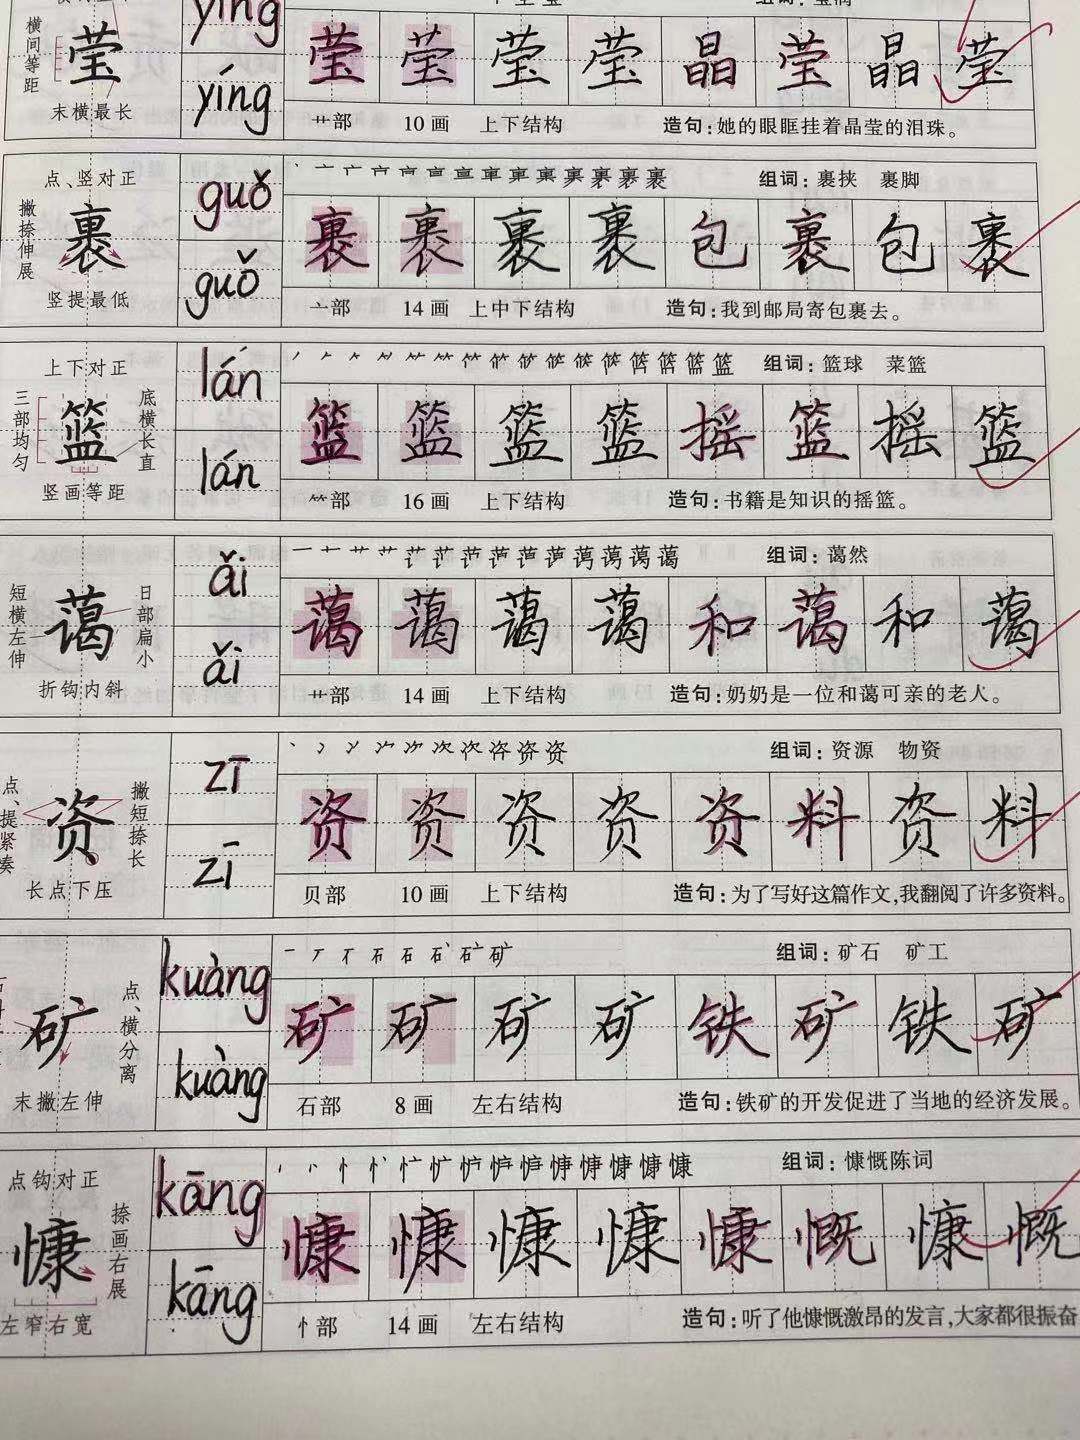 横间等距
莹
末横最长
yíng
yíng
莹 莹 莹 莹 晶 莹 晶 莹
艹部 10画 上下结构 造句:她的眼眶挂着晶莹的泪珠。
点、竖对正
撇捺伸展
裹
竖提最低
guǒ
guǒ
组词:裹挟 裹脚
裹 裹 裹 裹 包 裹 包 裹
亠部 14画 上中下结构 造句:我到邮局寄包裹去。
上下对正
三部均匀
篮
底横长直
竖画等距
lán
lán
组词:篮球 菜篮
篮 篮 篮 篮 摇 篮 摇 篮
⺮部 16画 上下结构 造句:书籍是知识的摇篮。
短横左伸
蔼
日部扁小
折钩内斜
ǎi
ǎi
组词:蔼然
蔼 蔼 蔼 蔼 和 蔼 和 蔼
艹部 14画 上下结构 造句:奶奶是一位和蔼可亲的老人。
点、提紧凑
资
撇短捺长
长点下压
zī
zī
组词:资源 物资
资 资 资 资 资 料 资 料
贝部 10画 上下结构 造句:为了写好这篇作文,我翻阅了许多资料。
矿
点、横分离
末撇左伸
kuàng
kuàng
组词:矿石 矿工
矿 矿 矿 矿 铁 矿 铁 矿
石部 8画 左右结构 造句:铁矿的开发促进了当地的经济发展。
点钩对正
慷
捺画右展
左窄右宽
kāng
kāng
组词:慷慨陈词
慷 慷 慷 慷 慷 慨 慷 慨
忄部 14画 左右结构 造句:听了他慷慨激昂的发言,大家都很振奋